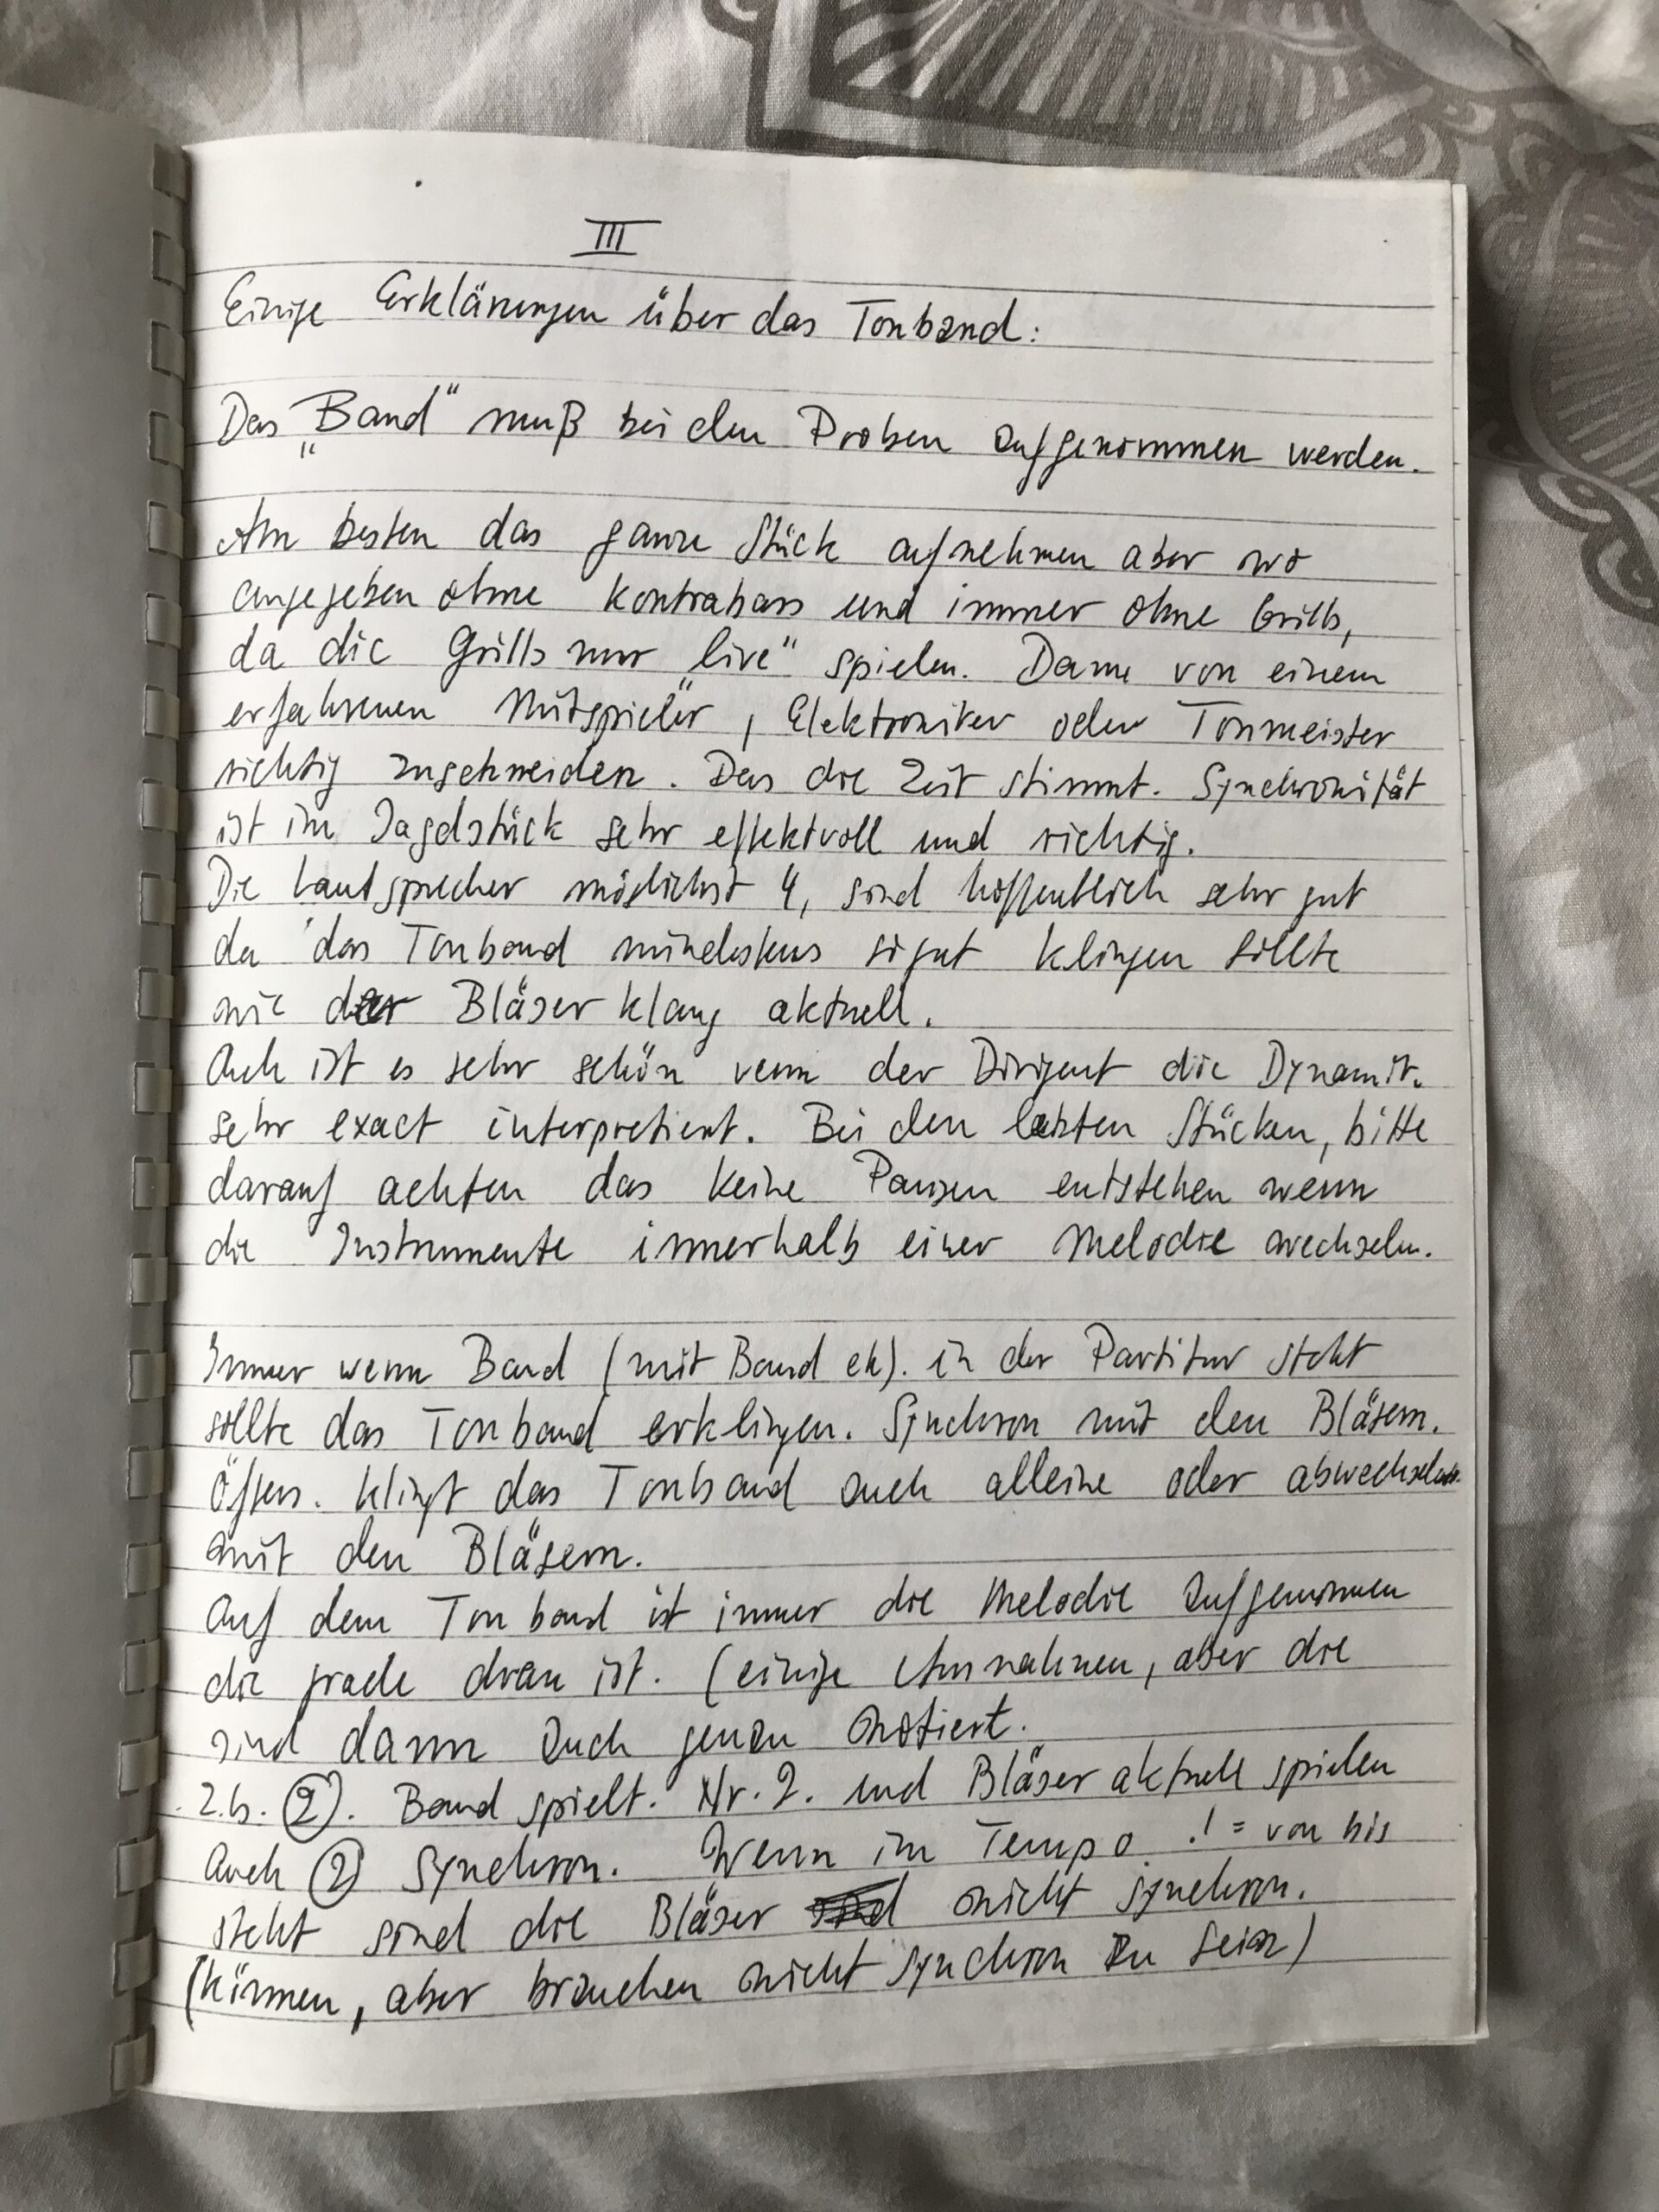 III
Einige Erklärungen über das Tonband:
Das „Band" muß bei den Proben aufgenommen werden.
Am besten das ganze Stück aufnehmen aber wo
angegeben ohne Kontrabass und immer ohne Grills,
da die Grills nur „live" spielen. Dann von einem
erfahrenen Mitspieler, Elektroniker oder Tonmeister
richtig zuschneiden. Das die Zeit stimmt. Synchronität
ist im Jagdstück sehr effektvoll und richtig.
Die Lautsprecher möglichst 4, sind hoffentlich sehr gut
da das Tonband mindestens so gut klingen sollte
wie der Bläserklang aktuell.
Auch ist es sehr schön wenn der Dirigent die Dynamik
sehr exact interpretiert. Bei den letzten Stücken, bitte
darauf achten das keine Pausen entstehen wenn
die Instrumente innerhalb einer Melodie wechseln.
Immer wenn Band (mit Band etc). in der Partitur steht
sollte das Tonband erklingen. Synchron mit den Bläsern.
Öfters. klingt das Tonband auch alleine oder abwechselnd
mit den Bläsern.
Auf dem Tonband ist immer die Melodie aufgenommen
die grade dran ist. (einige Ausnahmen, aber die
sind dann auch genau notiert.
z.b. (2). Band spielt. Nr. 2. und Bläser aktuell spielen
Auch (2) synchron. Wenn im Tempo .! = von bis
steht sind die Bläser nicht synchron.
(können, aber brauchen nicht synchron zu sein)